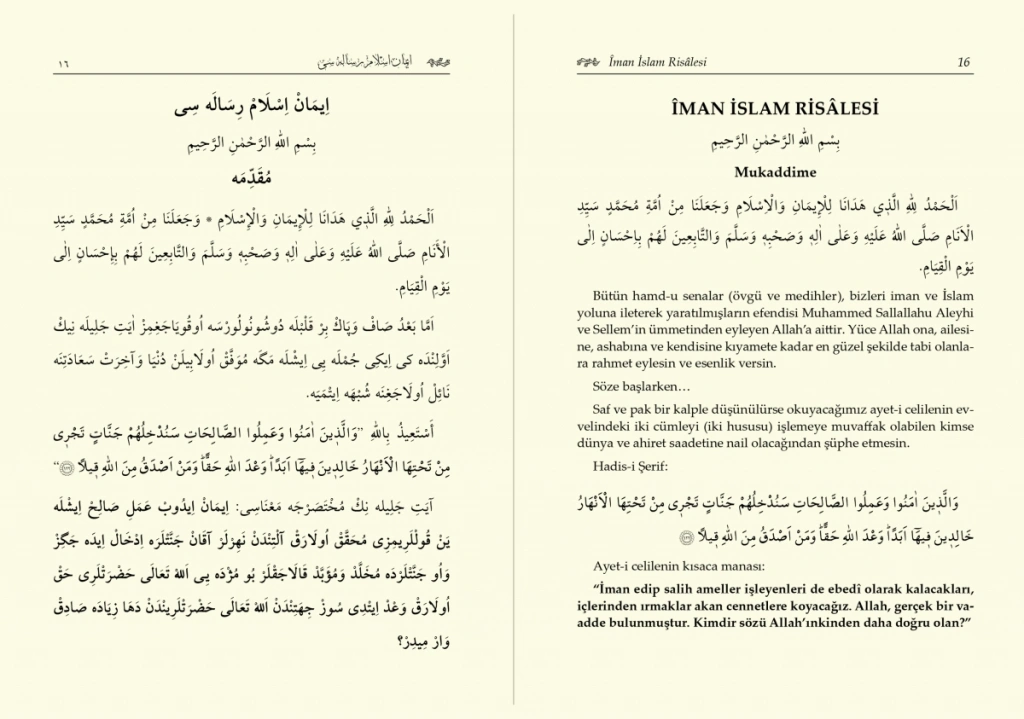 ايمان اسلام رساله سى ١٦
اِيمَانْ اِسْلَامْ رِسَالَه سِى
بِسْمِ اللهِ الرَّحْمٰنِ الرَّحِيمِ
مُقَدِّمَه
اَلْحَمْدُ لِلّٰهِ الَّذٖي هَدَانَا لِلْاِيمَانِ وَالْاِسْلَامِ * وَجَعَلَنَا مِنْ اُمَّةِ مُحَمَّدٍ سَيِّدِ
الْاَنَامِ صَلَّى اللهُ عَلَيْهِ وَعَلٰى اٰلِهٖ وَصَحْبِهٖ وَسَلَّمَ وَالتَّابِعِينَ لَهُمْ بِاِحْسَانٍ اِلٰى
يَوْمِ الْقِيَامِ.
اَمَّا بَعْدُ صَافْ وَپَاكْ بِرْ قَلْبْلَه دُوشُونُولُورْسَه اُوقُويَاجَغِمِزْ اٰيَتِ جَلِيلَه نِيكْ
اَوَّلِنْدَه كى اِيكِى جُمْلَه يِى اِيشْلَه مَكَه مُوَفَّقْ اُولَابِيلَنْ دُنْيَا وَاٰخِرَتْ سَعَادَتِنَه
نَائِلْ اُولَاجَغِنَه شُبْهَه اِيتْمَيَه.
اَسْتَعِيذُ بِاللهِ ”وَالَّذٖينَ اٰمَنُوا وَعَمِلُوا الصَّالِحَاتِ سَنُدْخِلُهُمْ جَنَّاتٍ تَجْرٖى
مِنْ تَحْتِهَا الْاَنْهَارُ خَالِدٖينَ فٖيهَا اَبَدًا وَعْدَ اللهِ حَقًّا وَمَنْ اَصْدَقُ مِنَ اللهِ قٖيلًا“
اٰيَتِ جَلِيلَه نِكْ مُخْتَصَرْجَه مَعْنَاسِى: اِيمَانْ اِيدُوبْ عَمَلِ صَالِحْ اِيشْلَه
يَنْ قُولْلَرِيمِزِى مُحَقَّقْ اُولَارَقْ اٰلْتِنْدَنْ نَهِرْلَرْ اٰقَانْ جَنَّتْلَرَه اِدْخَالْ اِيدَه جَگِزْ
وَاُو جَنَّتْلَرْدَه مُخَلَّدْ وَمُؤَبَّدْ قَالَاجَقْلَرْ بُو مُژْدَه يِى اَللهُ تَعَالَى حَضْرَتْلَرِى حَقْ
اُولَارَقْ وَعْدْ اِيتْدِى سُوزْ جِهَتِنْدَنْ اَللهُ تَعَالَى حَضْرَتْلَرِينْدَنْ دَهَا زِيَادَه صَادِقْ
وَارْ مِيدِرْ؟
Îman İslam Risâlesi 16
ÎMAN İSLAM RİSÂLESİ
بِسْمِ اللهِ الرَّحْمٰنِ الرَّحِيمِ
Mukaddime
اَلْحَمْدُ لِلّٰهِ الَّذٖي هَدَانَا لِلْاِيمَانِ وَالْاِسْلَامِ وَجَعَلَنَا مِنْ اُمَّةِ مُحَمَّدٍ سَيِّدِ
الْاَنَامِ صَلَّى اللهُ عَلَيْهِ وَعَلٰى اٰلِهٖ وَصَحْبِهٖ وَسَلَّمَ وَالتَّابِعِينَ لَهُمْ بِاِحْسَانٍ اِلٰى
يَوْمِ الْقِيَامِ.
Bütün hamd-u senalar (övgü ve medihler), bizleri iman ve İslam
yoluna ileterek yaratılmışların efendisi Muhammed Sallallahu Aleyhi
ve Sellem’in ümmetinden eyleyen Allah’a aittir. Yüce Allah ona, ailesi-
ne, ashabına ve kendisine kıyamete kadar en güzel şekilde tabi olanla-
ra rahmet eylesin ve esenlik versin.
Söze başlarken…
Saf ve pak bir kalple düşünülürse okuyacağımız ayet-i celilenin ev-
velindeki iki cümleyi (iki hususu) işlemeye muvaffak olabilen kimse
dünya ve ahiret saadetine nail olacağından şüphe etmesin.
Hadis-i Şerif:
وَالَّذٖينَ اٰمَنُوا وَعَمِلُوا الصَّالِحَاتِ سَنُدْخِلُهُمْ جَنَّاتٍ تَجْرٖى مِنْ تَحْتِهَا الْاَنْهَارُ
خَالِدٖينَ فٖيهَا اَبَدًا وَعْدَ اللهِ حَقًّا وَمَنْ اَصْدَقُ مِنَ اللهِ قٖيلًا
Ayet-i celilenin kısaca manası:
“İman edip salih ameller işleyenleri de ebedî olarak kalacakları,
içlerinden ırmaklar akan cennetlere koyacağız. Allah, gerçek bir va-
adde bulunmuştur. Kimdir sözü Allah’ınkinden daha doğru olan?”